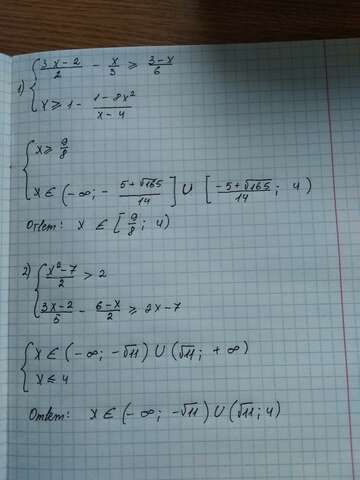 1) { (3x-2)/2 - x/3 ≥ (3-x)/6
x ≥ 1 - (1-8x²)/(x-4)
{ x ≥ 9/8
x ∈ (-∞; -(5+√165)/14] ∪ [(-5+√165)/14; 4)
Ответ: x ∈ [9/8; 4)
2) { (x²-7)/2 > 2
(3x-2)/5 - (6-x)/2 ≥ 2x-7
{ x ∈ (-∞; -√11) ∪ (√11; +∞)
x ≤ 4
Ответ: x ∈ (-∞; -√11) ∪ (√11; 4)